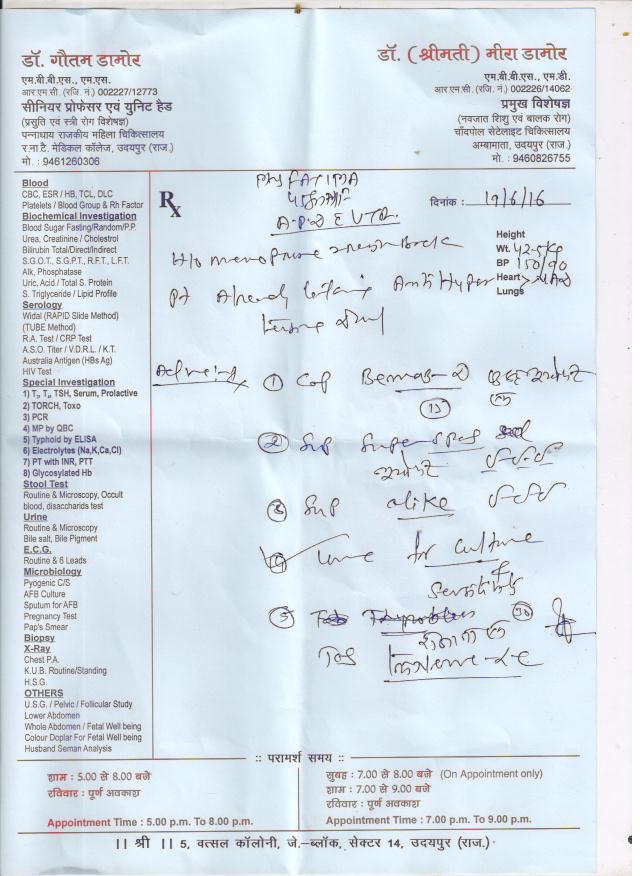 डॉ. गौतम डामोर
एम.बी.बी.एस., एम.एस.
आर.एम.सी. (रजि. नं.) 002227/12773
सीनियर प्रोफेसर एवं युनिट हैड
(प्रसुति एवं स्त्री रोग विशेषज्ञ)
पन्नाधाय राजकीय महिला चिकित्सालय
र.ना.टै. मेडिकल कॉलेज, उदयपुर (राज.)
मो. : 9461260306
डॉ. (श्रीमती) मीरा डामोर
एम.बी.बी.एस., एम.डी.
आर.एम.सी. (रजि. नं.) 002226/14062
प्रमुख विशेषज्ञ
(नवजात शिशु एवं बालक रोग)
चाँदपोल सेटेलाइट चिकित्सालय
अम्बामाता, उदयपुर (राज.)
मो. : 9460826755
Blood
CBC, ESR / HB, TCL, DLC
Platelets / Blood Group & Rh Factor
Biochemical Investigation
Blood Sugar Fasting/Random/P.P.
Urea, Creatinine / Cholestrol
Bilirubin Total/Direct/Indirect
S.G.O.T., S.G.P.T., R.F.T., L.F.T.
Alk, Phosphatase
Uric, Acid / Total S. Protein
S. Triglyceride / Lipid Profile
Serology
Widal (RAPID Slide Method)
(TUBE Method)
R.A. Test / CRP Test
A.S.O. Titer / V.D.R.L. / K.T.
Australia Antigen (HBs Ag)
HIV Test
Special Investigation
1) T₃, T₄, TSH, Serum, Prolactive
2) TORCH, Toxo
3) PCR
4) MP by QBC
5) Typhoid by ELISA
6) Electrolytes (Na,K,Ca,Cl)
7) PT with INR, PTT
8) Glycosylated Hb
Stool Test
Routine & Microscopy, Occult
blood, disaccharids test
Urine
Routine & Microscopy
Bile salt, Bile Pigment
E.C.G.
Routine & 6 Leads
Microbiology
Pyogenic C/S
AFB Culture
Sputum for AFB
Pregnancy Test
Pap's Smear
Biopsy
X-Ray
Chest P.A.
K.U.B. Routine/Standing
H.S.G.
OTHERS
U.S.G. / Pelvic / Follicular Study
Lower Abdomen
Whole Abdomen / Fetal Well being
Colour Doplar For Fetal Well being
Husband Seman Analysis
Rx
FATIMA
दिनांक : 19/6/16
Height
Wt. 42.5 kg
BP 150/90
Heart
Lungs
H/o menopause back
Pt Already taking Anti Hyper
① Cap
15
② Syp
③ Syp alike
④ Urine for culture
& Sensitivity
⑤ Tab
30
Tab
:: परामर्श समय ::
शाम : 5.00 से 8.00 बजे
रविवार : पूर्ण अवकाश
Appointment Time : 5.00 p.m. To 8.00 p.m.
सुबह : 7.00 से 8.00 बजे (On Appointment only)
शाम : 7.00 से 9.00 बजे
रविवार : पूर्ण अवकाश
Appointment Time : 7.00 p.m. To 9.00 p.m.
।। श्री ।। 5, वत्सल कॉलोनी, जे.–ब्लॉक, सेक्टर 14, उदयपुर (राज.)